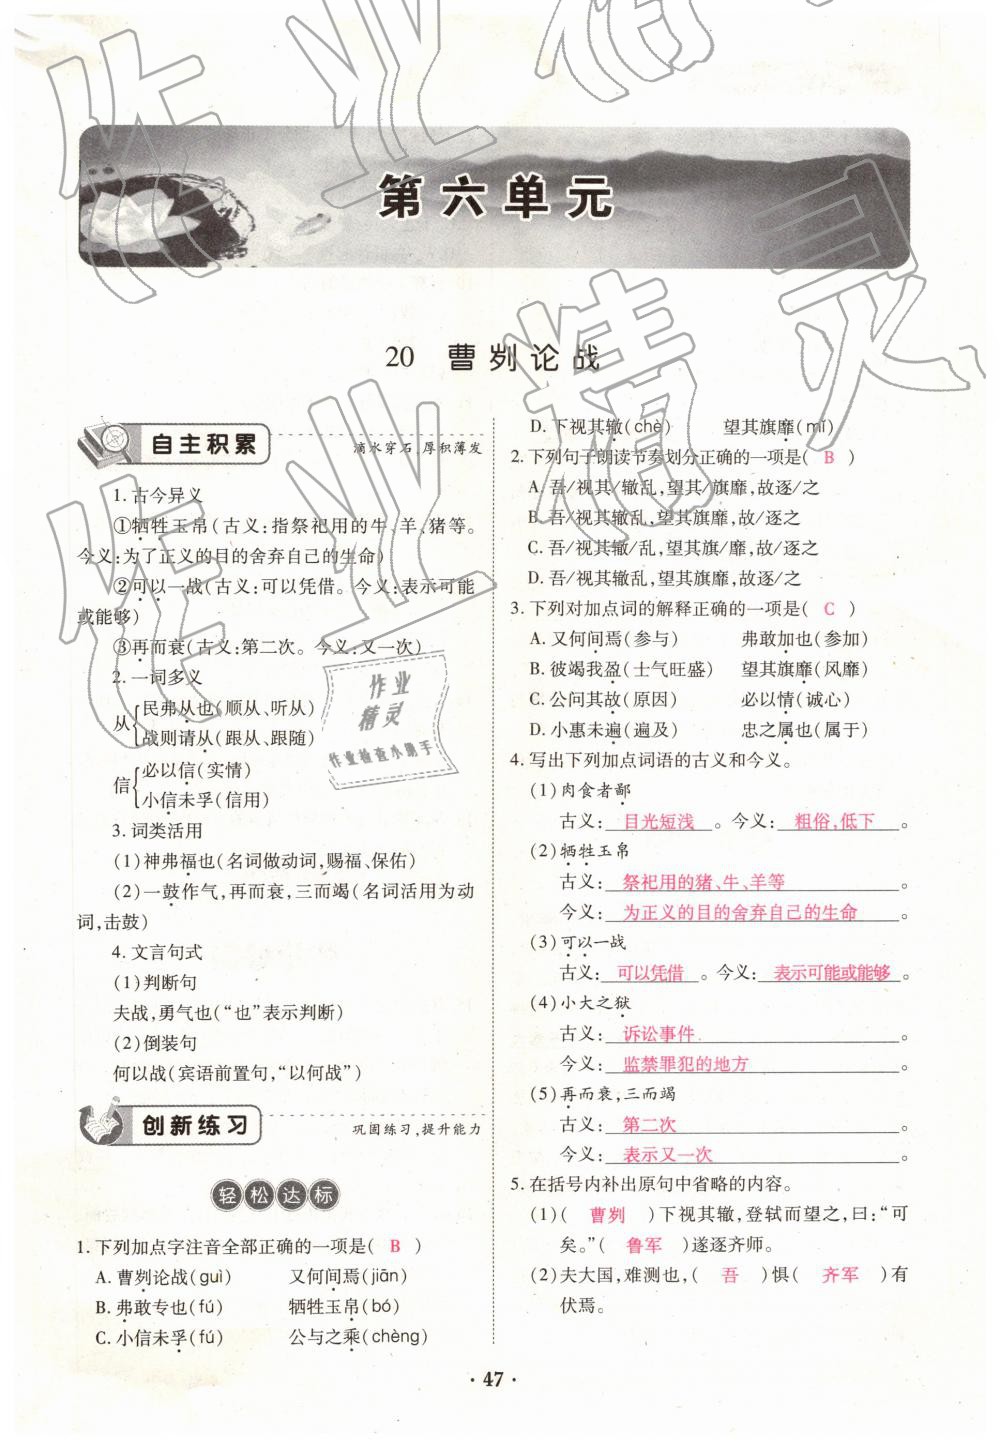 第六单元
20 曹刿论战
自主积累
滴水穿石,厚积薄发
1. 古今异义
①牺牲玉帛(古义:指祭祀用的牛、羊、猪等。
今义:为了正义的目的舍弃自己的生命)
②可以一战(古义:可以凭借。今义:表示可能
或能够)
③再而衰(古义:第二次。今义:又一次)
2. 一词多义
从
民弗从也(顺从、听从)
战则请从(跟从、跟随)
信
必以信(实情)
小信未孚(信用)
3. 词类活用
(1)神弗福也(名词做动词,赐福、保佑)
(2)一鼓作气,再而衰,三而竭(名词活用为动
词,击鼓)
4. 文言句式
(1)判断句
夫战,勇气也(“也”表示判断)
(2)倒装句
何以战(宾语前置句,“以何战”)
创新练习
巩固练习,提升能力
轻松达标
1. 下列加点字注音全部正确的一项是( B )
A. 曹刿论战(guì) 又何间焉(jiān)
B. 弗敢专也(fú) 牺牲玉帛(bó)
C. 小信未孚(fú) 公与之乘(chèng)
D. 下视其辙(chè) 望其旗靡(mǐ)
2. 下列句子朗读节奏划分正确的一项是( B )
A. 吾/视其/辙乱,望其/旗靡,故逐/之
B. 吾/视其辙乱,望其旗靡,故/逐之
C. 吾/视其辙/乱,望其旗/靡,故/逐之
D. 吾/视其辙乱,望其旗靡,故逐/之
3. 下列对加点词的解释正确的一项是( C )
A. 又何间焉(参与) 弗敢加也(参加)
B. 彼竭我盈(士气旺盛) 望其旗靡(风靡)
C. 公问其故(原因) 必以情(诚心)
D. 小惠未遍(遍及) 忠之属也(属于)
4. 写出下列加点词语的古义和今义。
(1)肉食者鄙
古义: 目光短浅 。今义: 粗俗,低下 。
(2)牺牲玉帛
古义: 祭祀用的猪、牛、羊等 。
今义: 为正义的目的舍弃自己的生命 。
(3)可以一战
古义: 可以凭借 。今义: 表示可能或能够 。
(4)小大之狱
古义: 诉讼事件 。
今义: 监禁罪犯的地方 。
(5)再而衰,三而竭
古义: 第二次 。
今义: 表示又一次 。
5. 在括号内补出原句中省略的内容。
(1)( 曹刿 )下视其辙,登轼而望之,曰:“可
矣。”( 鲁军 )遂逐齐师。
(2)夫大国,难测也,( 吾 )惧( 齐军 )有
伏焉。
· 47 ·
作业精灵
作业精灵
作业
精灵
作业检查小助手